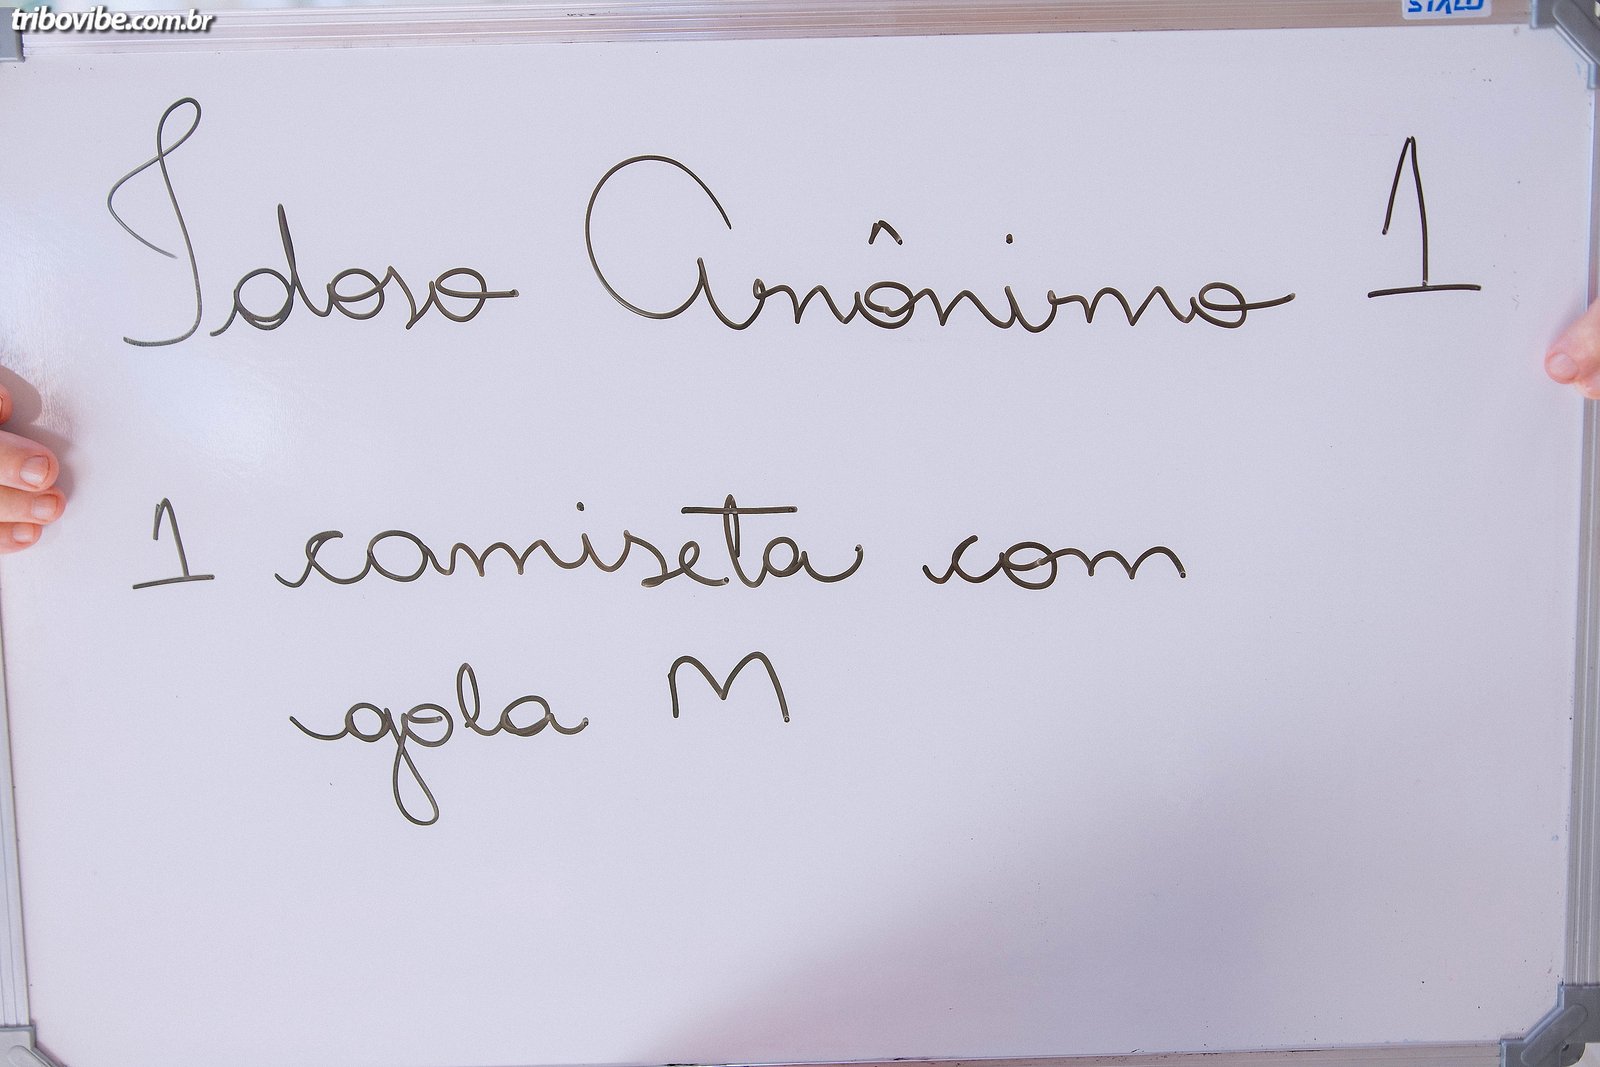 tribovibe.com.br
STALO
Idoso Anônimo 1
1 camiseta com
gola M